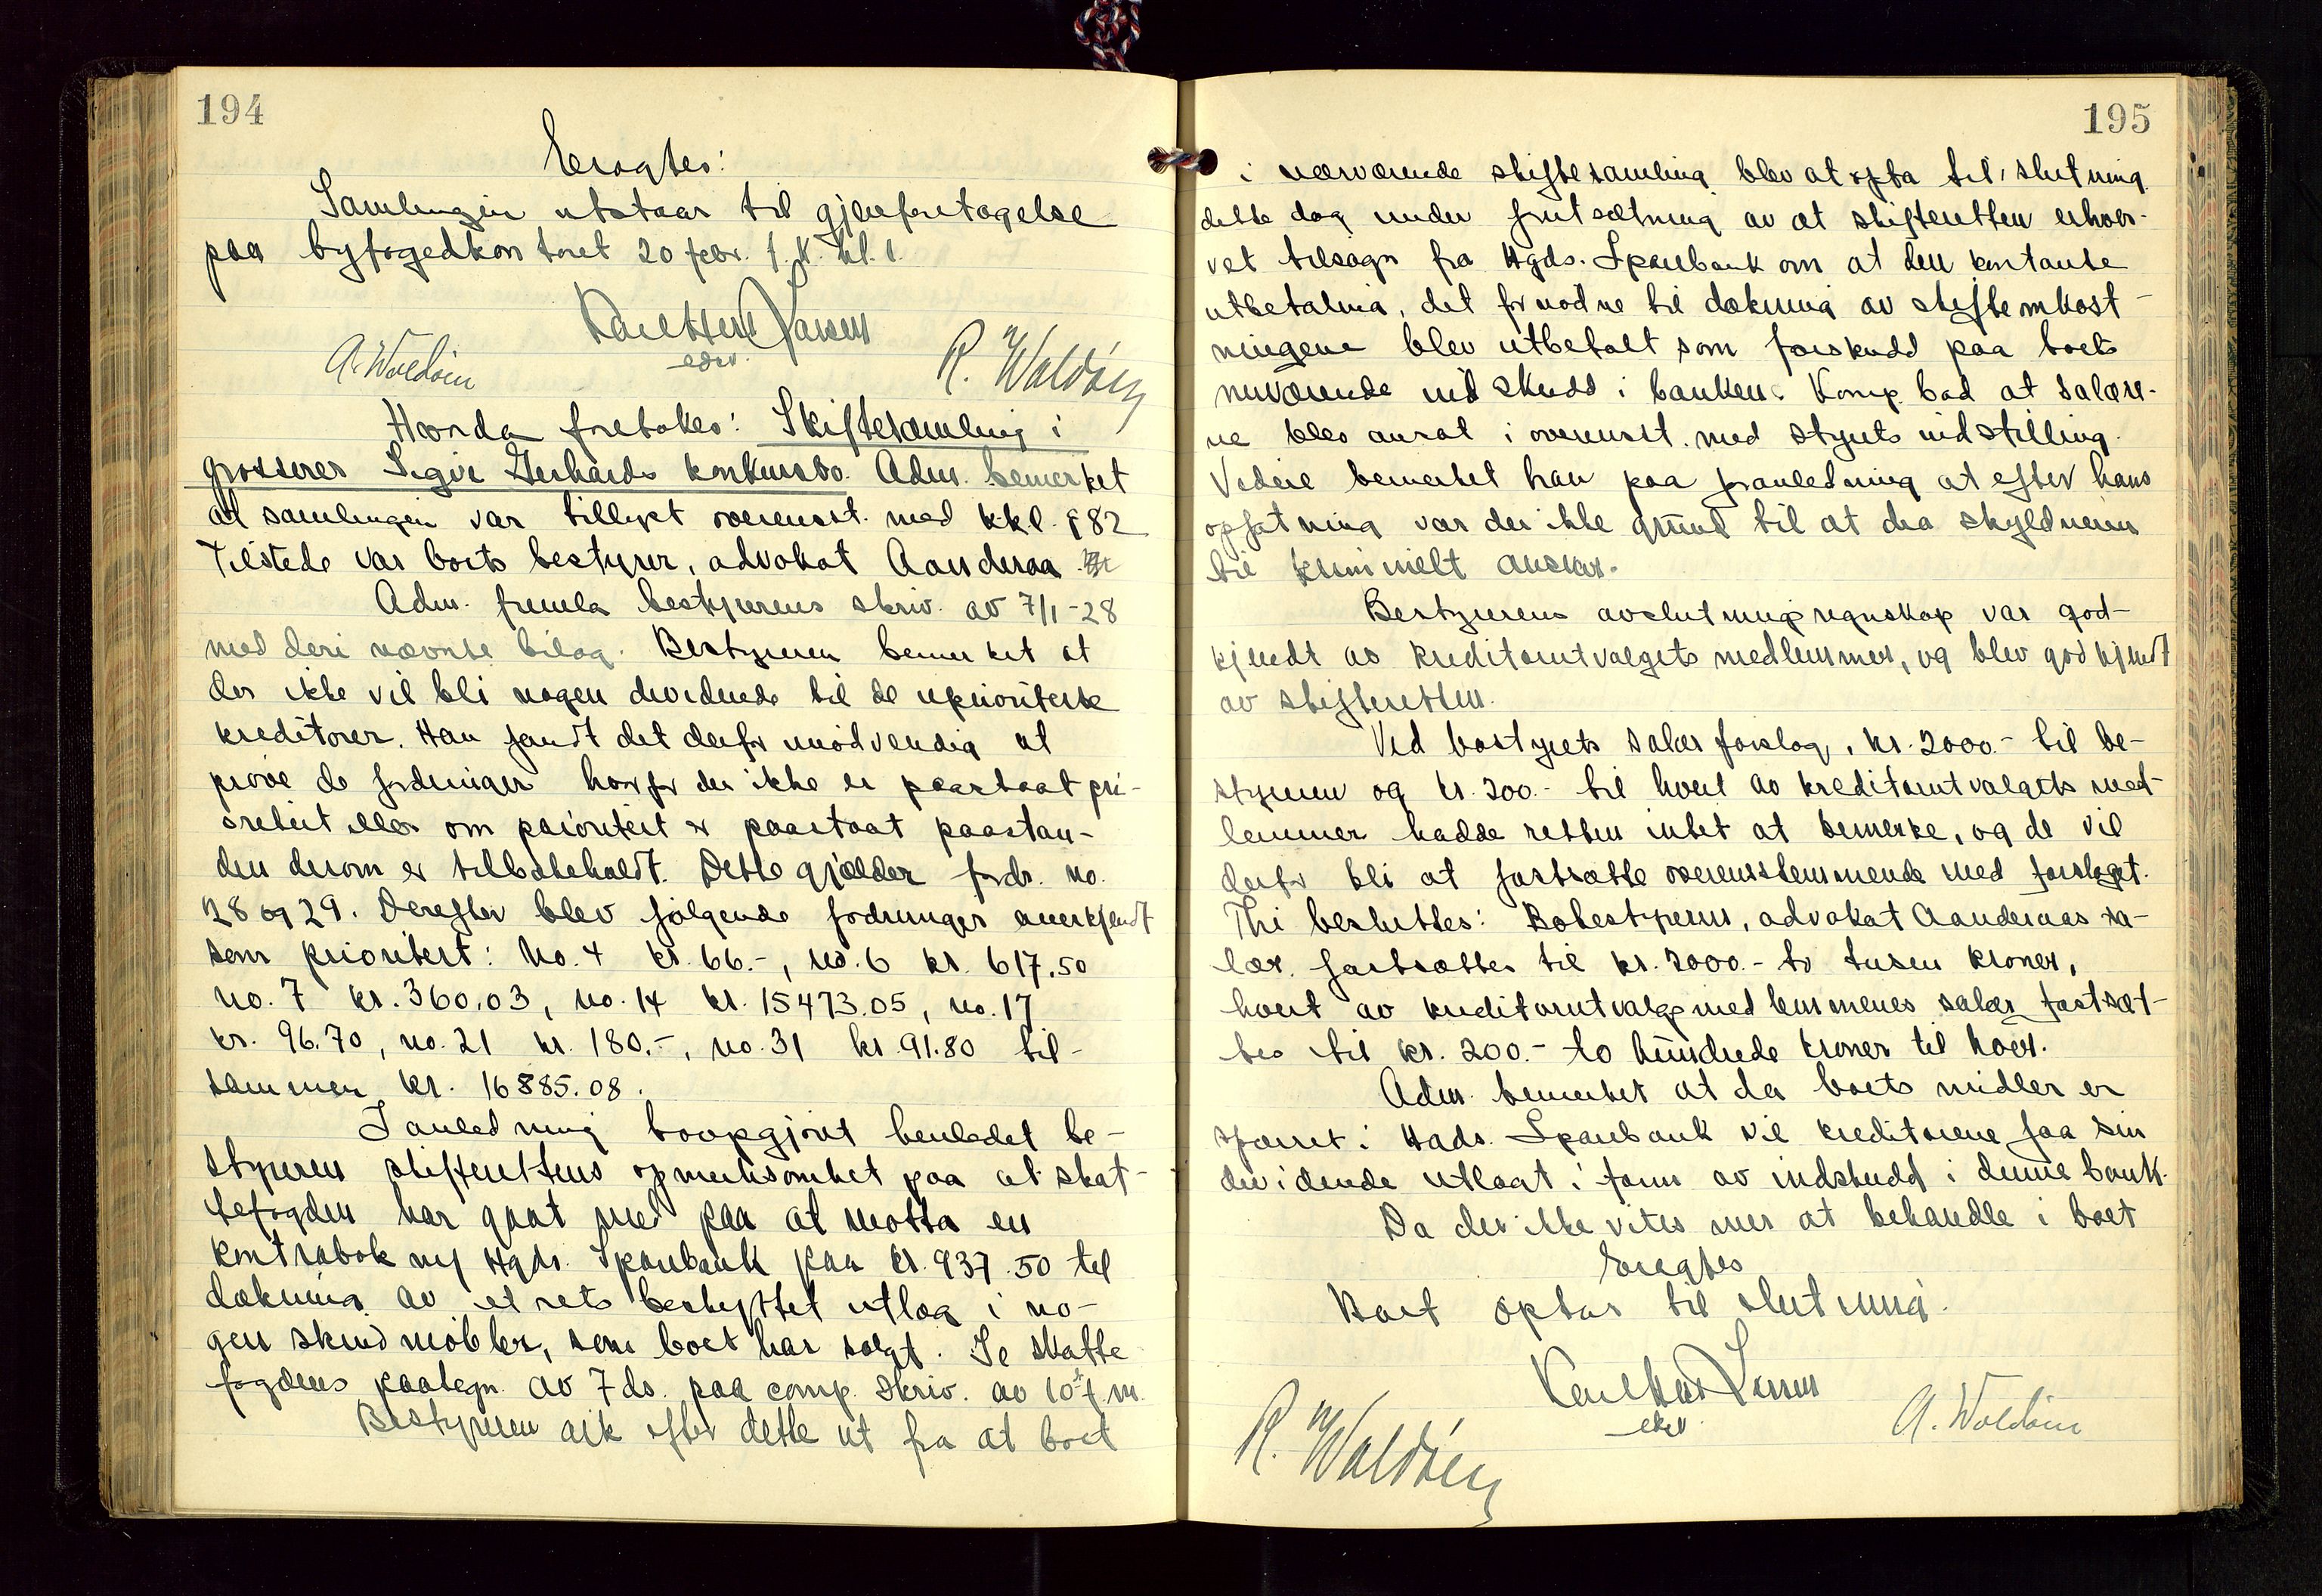 194
Eragtes:
Samlingen utstaar til gjenforetagelse
paa byfogedkontoret 20 febr. f. k. kl. 1.
Larsen
edsv.
A. Woldsin
R. Waldsen
Hvorda foretokes: Skiftesamling i
grosserer Sigv. Gerhards konkursbo. Adm. bemerket
at samlingen var tillyst overensst. med kkl. § 82
Tilstede var boets bestyrer, advokat Aanderaa
Adm. fremla bestyrerens skriv. av 7/1-28
med deri nævnte bilag. Bestyreren bemerket at
der ikke vil bli nogen dividende til de uprioriterte
kreditorer. Han fandt det derfor unødvendig at
prøve de fordringer hvorfor der ikke er paastaat pri-
oritet eller om prioritet er paastaat paastan-
den derom er tilbakeholdt. Dette gjælder fordr. no.
28 og 29. Derefter blev følgende fordringer anerkjendt
som prioritert: No. 4 kr. 66.-, no. 6 kr. 617.50
no. 7 kr. 360.03, no. 14 kr. 15473.05, no. 17
kr. 96.70, no. 21 kr. 180.-, no. 31 kr. 91.80 til-
sammen kr. 16885.08.
I anledning boopgjøret henledet be-
styreren skifterettens opmerksomhet paa at skat-
tefogden har gaat med paa at motta en
kontrabok Hgds. Sparebank paa kr. 937.50 til
dækning av et rets beskyttet utlæg i no-
gen skind møbler, som boet har solgt. Se skatte
fogdens paategn. av 7 ds. paa comp. skriv. av 10 f. m.
Bestyreren gik efter dette ut fra at boet
195
i nærværende skiftesamling blev at opta til slutning
dette dag under forutsætning av at skifteretten erhver-
vet tilsagn fra Hgds. Sparebank om at den kontante
utbetaling, det fornødne til dækning av skifteomkost-
ningene blev utbetalt som forskudd paa boets
nuværende indskudd i banken. Komp. bad at salære-
ne blev ansat i overensst. med styrets indstilling.
Videre bemerket han paa foranledning at efter hans
opfatning var der ikke grund til at dra skyldneren
til kriminelt ansvar.
Bestyrerens avslutningsregnskap var god-
kjendt av kreditorutvalgets medlemmer, og blev godkjendt
av skifteretten.
Ved bostyrets salær forslag, kr. 2000.- til be-
styreren og kr. 200.- til hvert av kreditorutvalgets med-
lemmer hadde retten intet at bemerke, og de vil
derfor bli at fastsætte overensstemmende med forslaget.
Thi besluttes: Bobestyreren, advokat Aanderaas sa-
lær fastsættes til kr. 2000.- to tusen kroner,
hvert av kreditorutvalgsmedlemmenes salær fastsæt-
tes til kr. 200.- to hundrede kroner til hver.
Adm. bemerket at da boets midler er
sperret i Hgds. Sparebank vil kreditorene faa sin
dividende utlagt i form av indskudd i denne bank.
Da der ikke vites mer at behandle i boet
Eragtes
Boet optas til slutning.
Larsen
edsv.
R. Waldsen
A. Woldsin